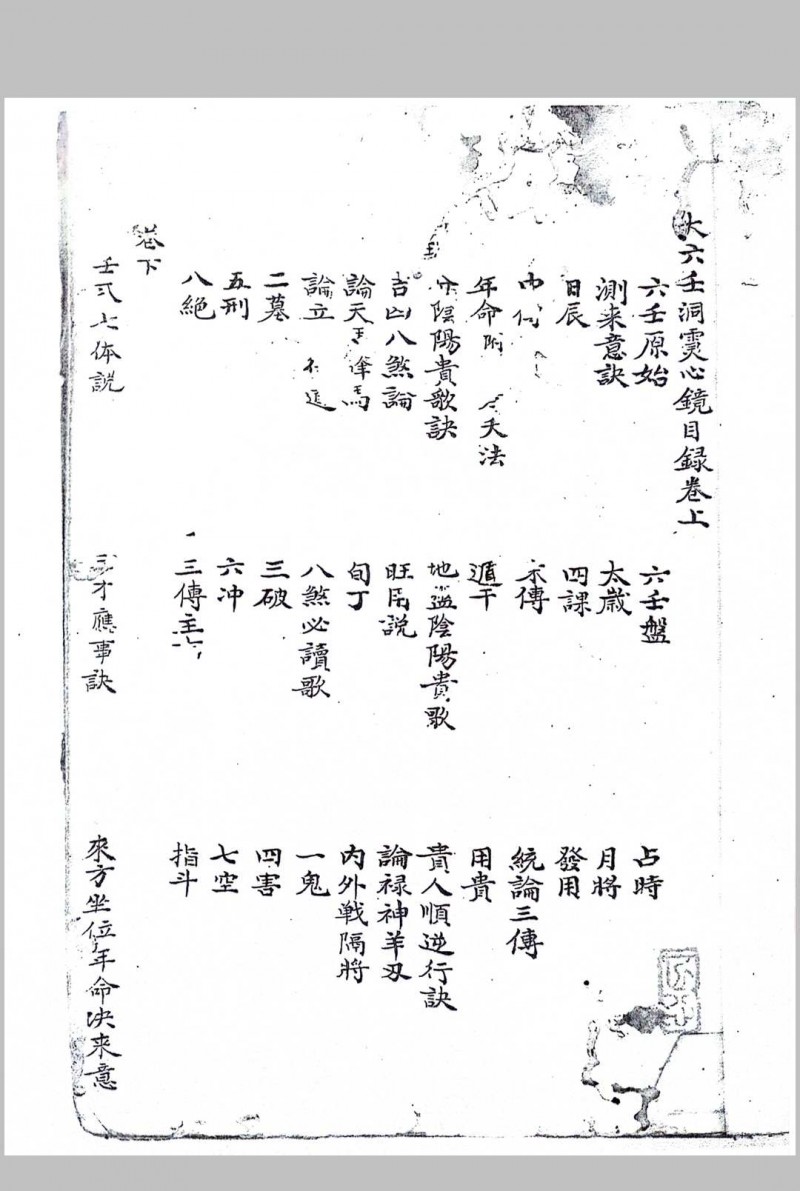 大六壬洞霊心鏡目録卷上
六壬原始　六壬盤　占時
測来意訣　太歳　月將
日辰　四課　發用
傳　統論三傳
年命　夭法　遁干　用貴
陰陽貴歌訣　地盤陰陽貴歌　貴人順逆行訣
吉凶八煞論　旺　説　論禄神羊刃
論天　馬　旬丁　内外戦隔將
論立　八煞必讀歌　一鬼
二墓　三破　四害
五刑　六冲　七空
八絶　三傳主　指斗
卷下
壬式七体説　三才應事訣　來方坐位年命决来意